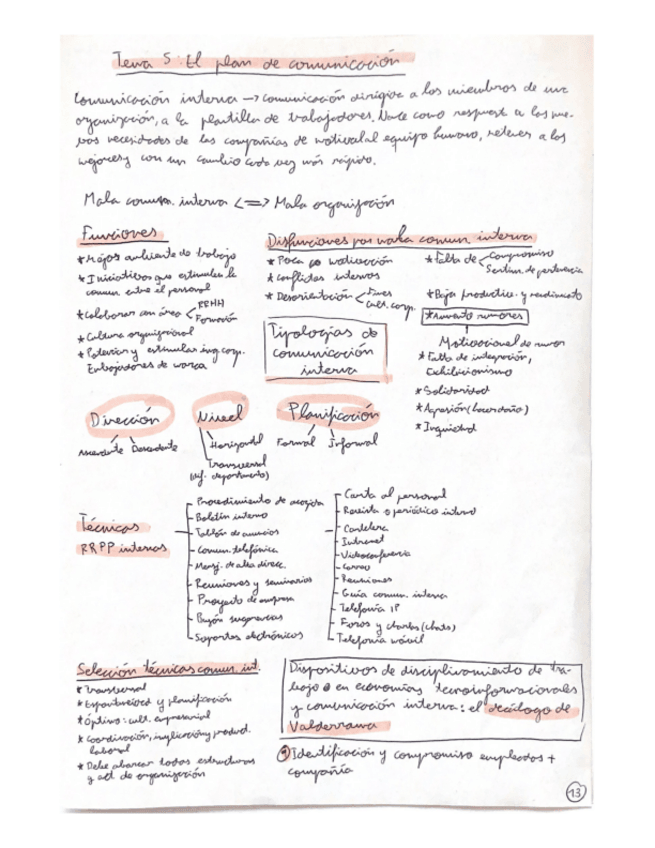 Tema 5: El plan de comunicación
Comunicación interna → comunicación dirigida a los miembros de una
organización, a la plantilla de trabajadores. Nace como respuesta a las nue-
vas necesidades de las compañías de motivar al equipo humano, retener a los
mejores y con un cambio cada vez más rápido.
Mala comun. interna <=> Mala organización
Funciones
* Mejor ambiente de trabajo
* Iniciativas que estimulen la
comun. entre el personal
* Colaborar con área
RRHH
Formación
* Cultura organizacional
* Potenciar y estimular img. corp.
Embajadores de marca
Disfunciones por mala comun. interna
* Poca motivación
* Conflictos internos
* Desorientación
Fines
Cult. corp.
* Falta de
Compromiso
Sentim. de pertenencia
* Baja productiv. y rendimiento
* Aumento rumores
Motivacional de rumor
* Falta de integración,
Exhibicionismo
* Solidaridad
* Agresión (hacer daño)
* Inquietud
Tipologías de
comunicación
interna
Dirección
Ascendente Descendente
Nivel
Horizontal
Transversal
(dif. departamento)
Planificación
Formal Informal
Técnicas
RRPP internas
Procedimiento de acogida
Boletín interno
Tablón de anuncios
Comun. telefónica
Mensj. de alta direcc.
Reuniones y seminarios
Proyecto de empresa
Buzón sugerencias
Soportes electrónicos
Carta al personal
Revista o periódico interno
Cartelera
Intranet
Videoconferencia
Correo
Reuniones
Guía comun. interna
Telefonía IP
Foros y charlas (chats)
Telefonía móvil
Selección técnicas comun. int.
* Transversal
* Espontaneidad y planificación
* Óptimo: cult. empresarial
* Coordinación, implicación y product.
laboral
* Debe abarcar todas estructuras
y act. de organización
Dispositivos de disciplinamiento de tra-
bajo en economías tecnoinformacionales
y comunicación interna: el decálogo de
Valderrama
Identificación y compromiso empleados +
compañía
13